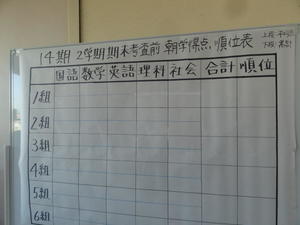 14期 2学期期末考査前 朝学得点、順位表
国語 数学 英語 理科 社会 合計 順位
1組
2組
3組
4組
5組
6組